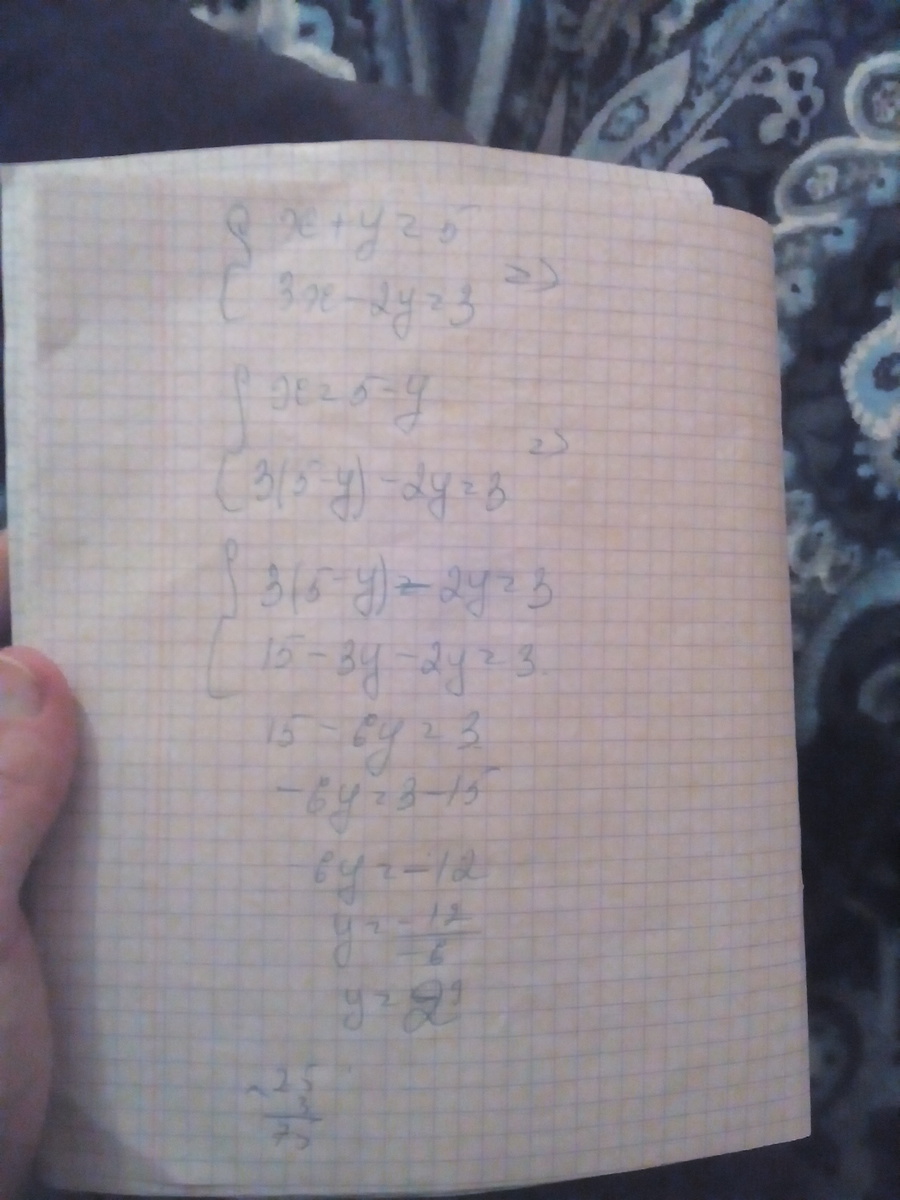 x + y = 5
3x - 2y = 3 =>
x = 5 - y
3(5 - y) - 2y = 3 =>
3(5 - y) - 2y = 3
15 - 3y - 2y = 3
15 - 6y = 3
-6y = 3 - 15
6y = -12
y = -12/-6
y = 2
25
75